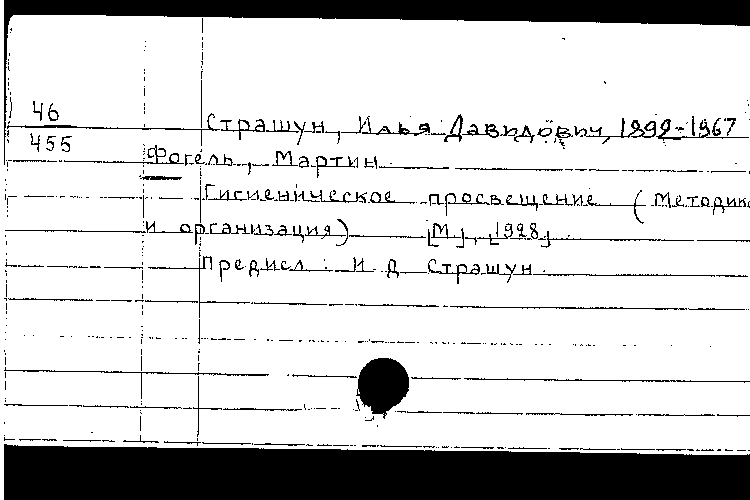 46
455
Страшун, Илья Давидович, 1892-1967
Фогель, Мартин
Гигиеническое просвещение (методика
и организация) [М], [1928]
Предисл : И Д Страшун.